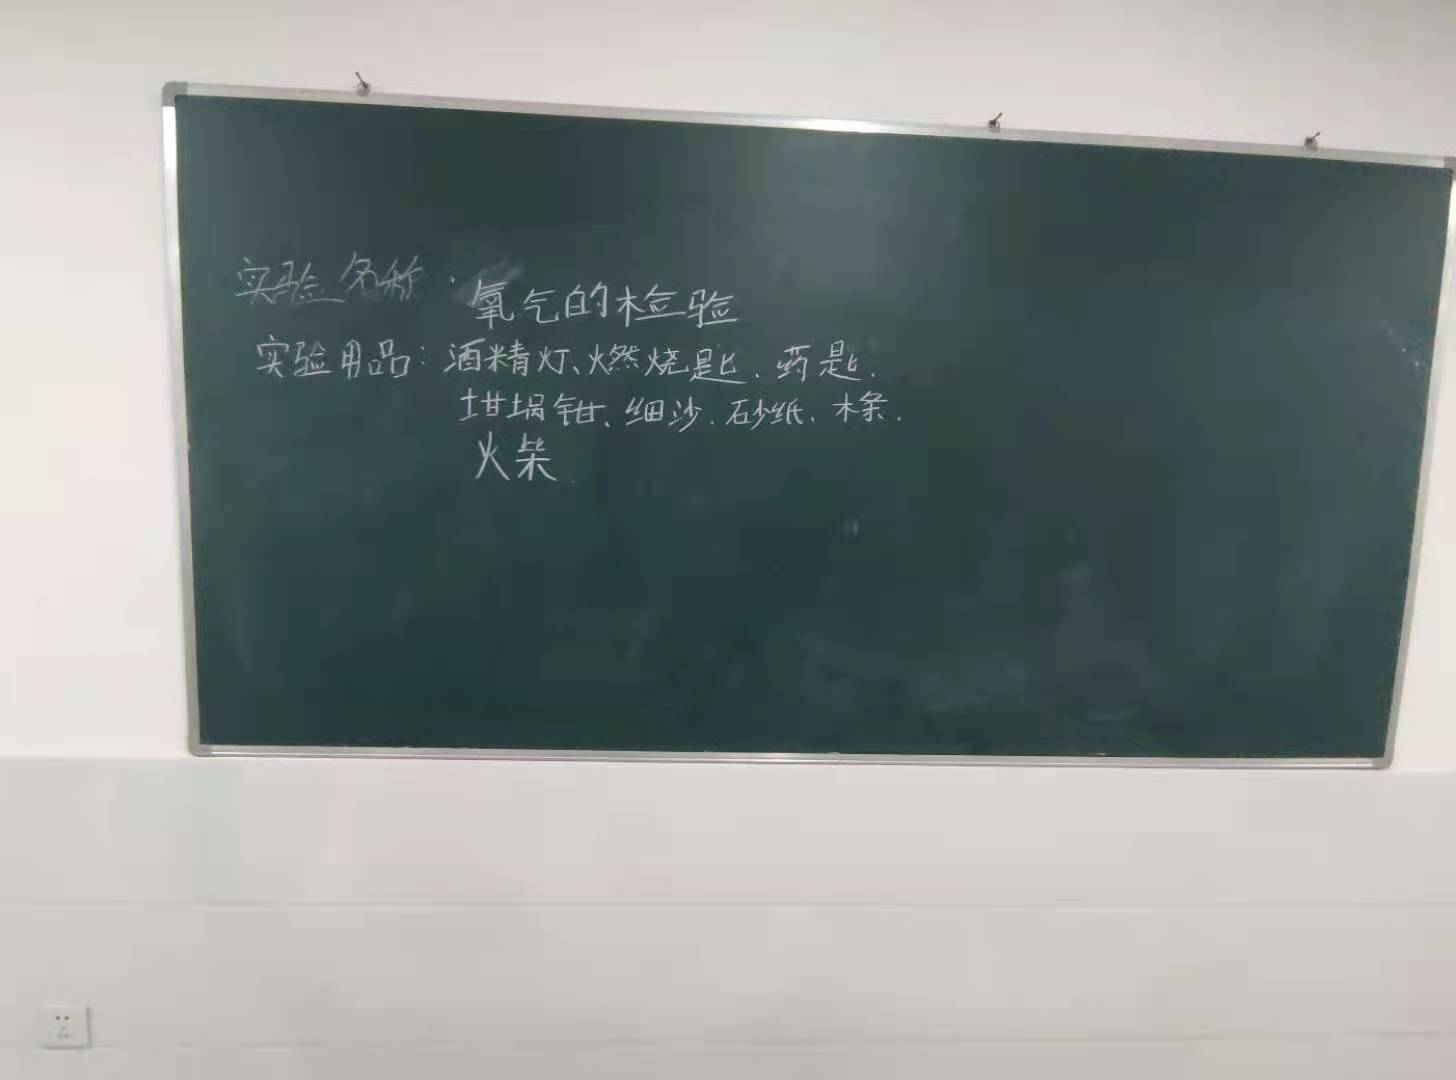 实验名称：氧气的检验
实验用品：酒精灯、燃烧匙、药匙、
坩埚钳、细沙、砂纸、木条、
火柴